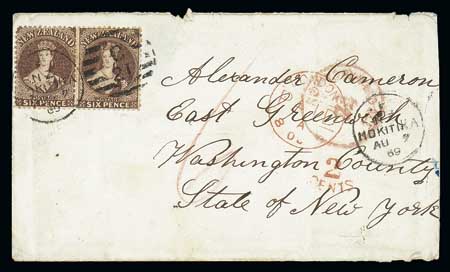 NEW ZEALAND NEW ZEALAND
SIX PENCE SIX PENCE
Alexander Cameron
East Greenwich
HOKITIKA
AU
69
Washington County
2
CENTS
State of New York